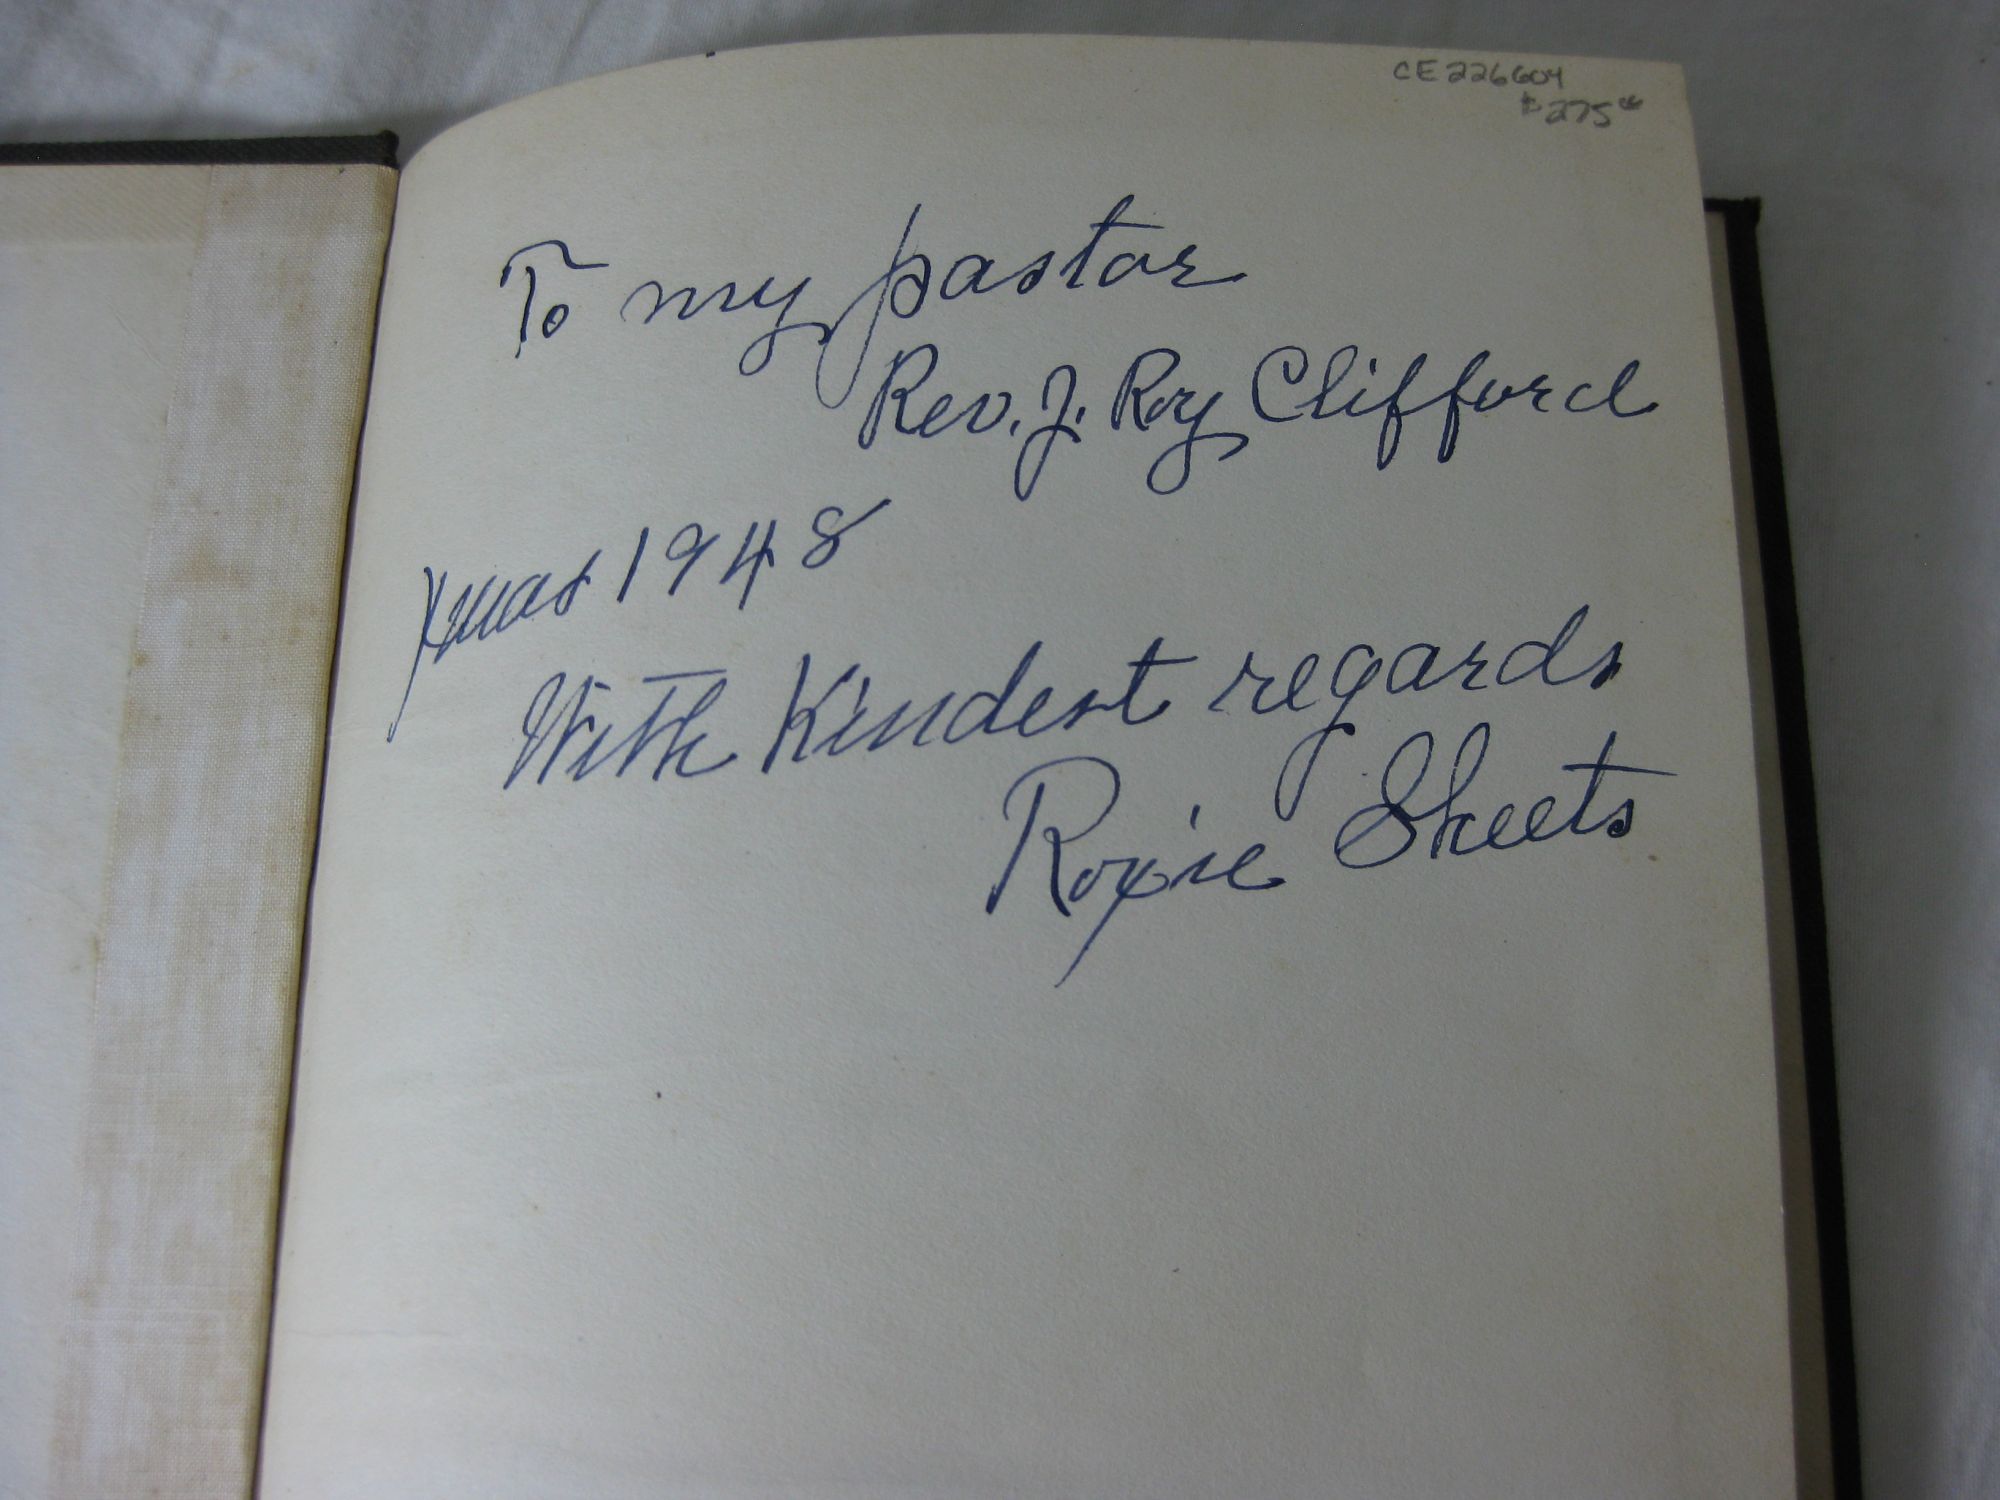 CE226604
$275⁰⁰
To my pastor
Rev. J. Roy Clifford
Xmas 1948
With Kindest regards
Roxie Sheets